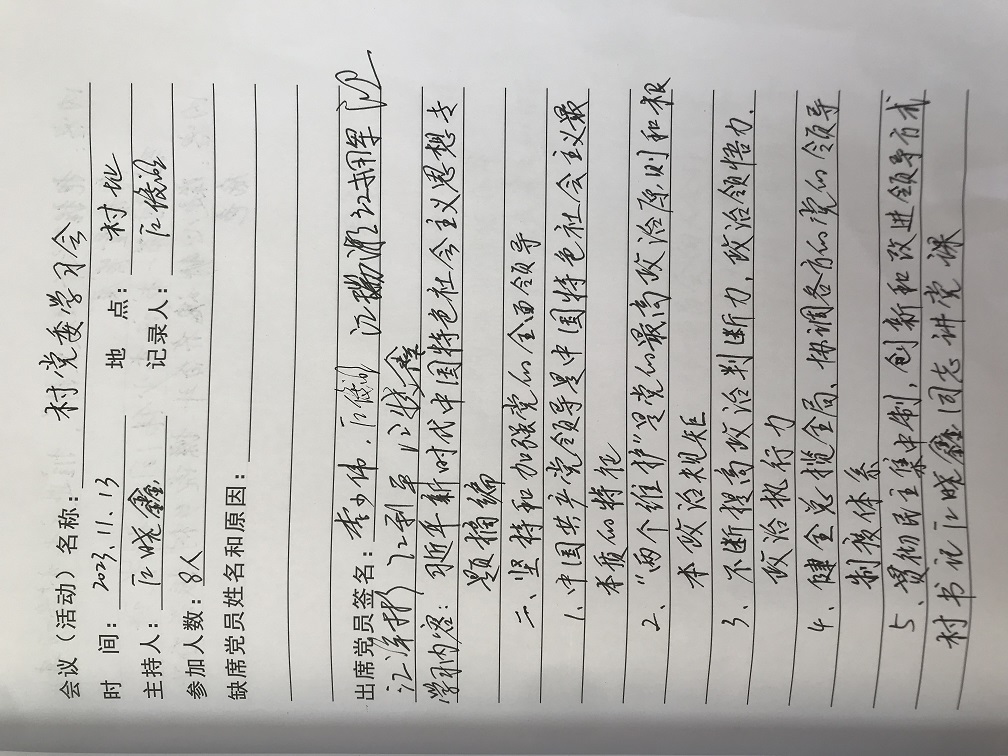 会议（活动）名称：村党委学习会
时 间：2023.11.13 地 点：村地
主持人：江晓鑫 记录人：江俊
参加人数：8人
缺席党员姓名和原因：
出席党员签名：李少伟 江俊 江
江 江利军 江晓鑫
学习内容：习近平新时代中国特色社会主义思想专
题摘编
二、坚持和加强党的全面领导
1、中国共产党领导是中国特色社会主义最
本质的特征
2、"两个维护"是党的最高政治原则和根
本政治规矩
3、不断提高政治判断力，政治领悟力，
政治执行力
4、健全总揽全局、协调各方的党的领导
制度体系
5、贯彻民主集中制，创新和改进领导方式
村书记江晓鑫同志讲党课